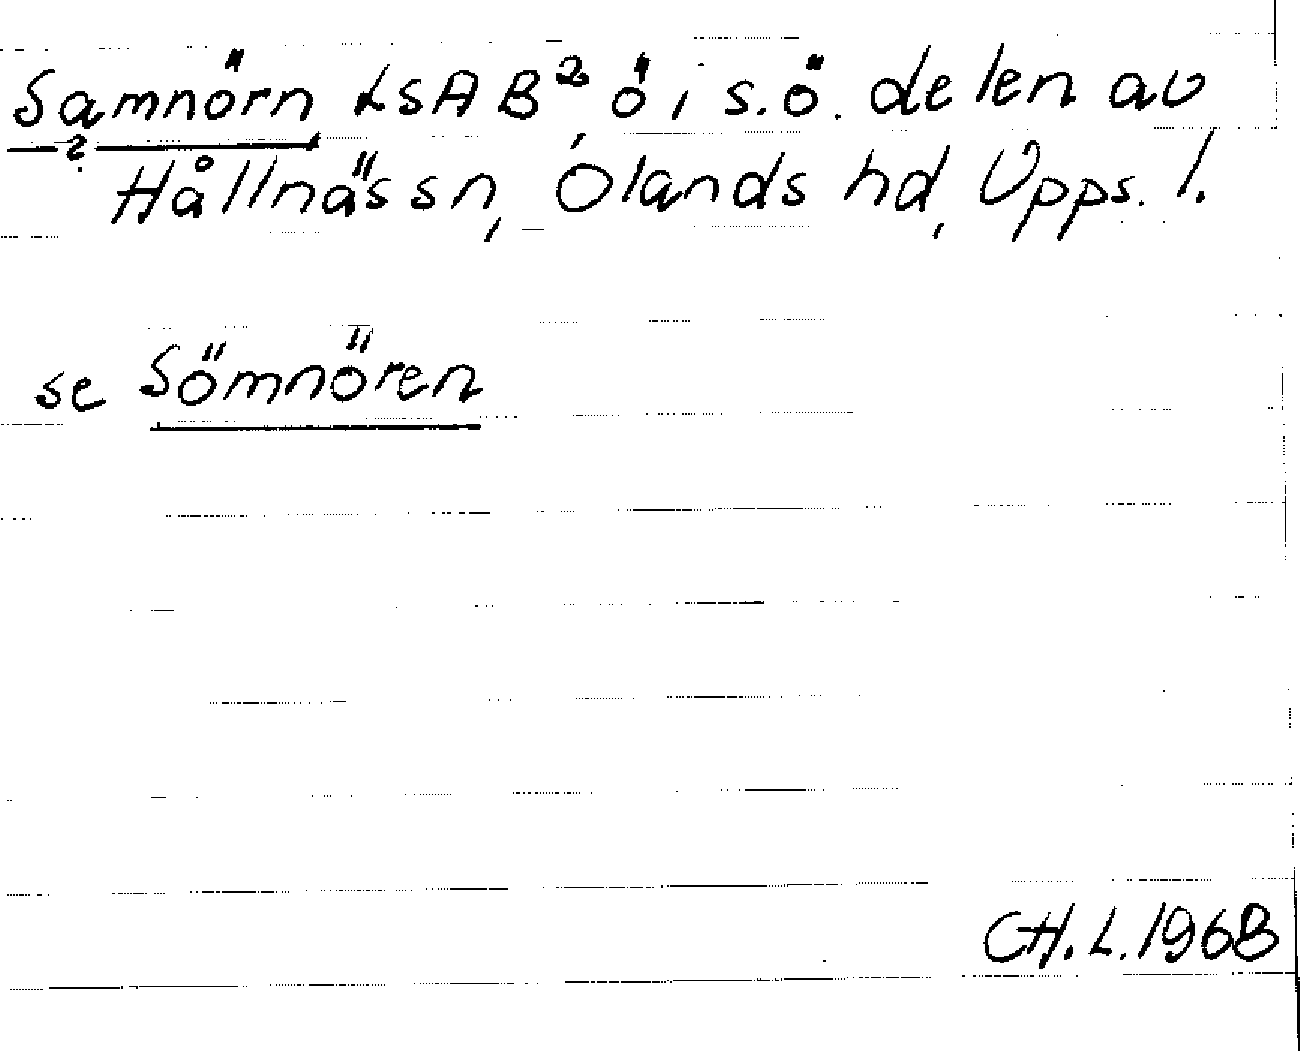 Samnörn LSA B² ö i s.ö. delen av
?
Hållnäs sn, Ölands hd, Upps. l.
se Sömnören
CH.L. 1968